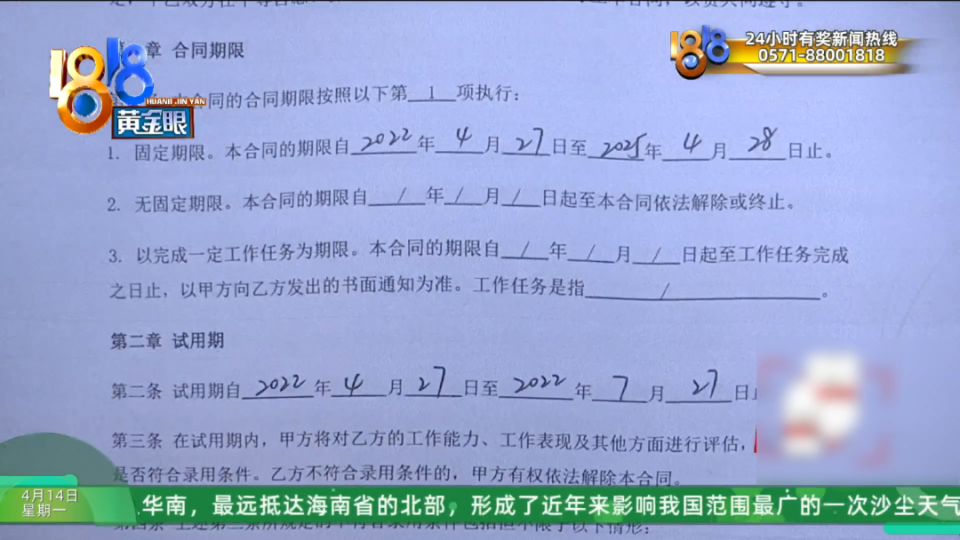 章 合同期限
本合同的合同期限按照以下第 1 项执行：
1. 固定期限。本合同的期限自 2022 年 4 月 27 日至 2025 年 4 月 28 日止。
2. 无固定期限。本合同的期限自 / 年 / 月 / 日起至本合同依法解除或终止。
3. 以完成一定工作任务为期限。本合同的期限自 / 年 / 月 / 日起至工作任务完成
之日止，以甲方向乙方发出的书面通知为准。工作任务是指 / 。
第二章 试用期
第二条 试用期自 2022 年 4 月 27 日至 2022 年 7 月 27 日
第三条 在试用期内，甲方将对乙方的工作能力、工作表现及其他方面进行评估，
是否符合录用条件。乙方不符合录用条件的，甲方有权依法解除本合同。
1818
HUANG JIN YAN
黄金眼
1818
24小时有奖新闻热线
0571-88001818
4月14日
星期一
华南，最远抵达海南省的北部，形成了近年来影响我国范围最广的一次沙尘天气